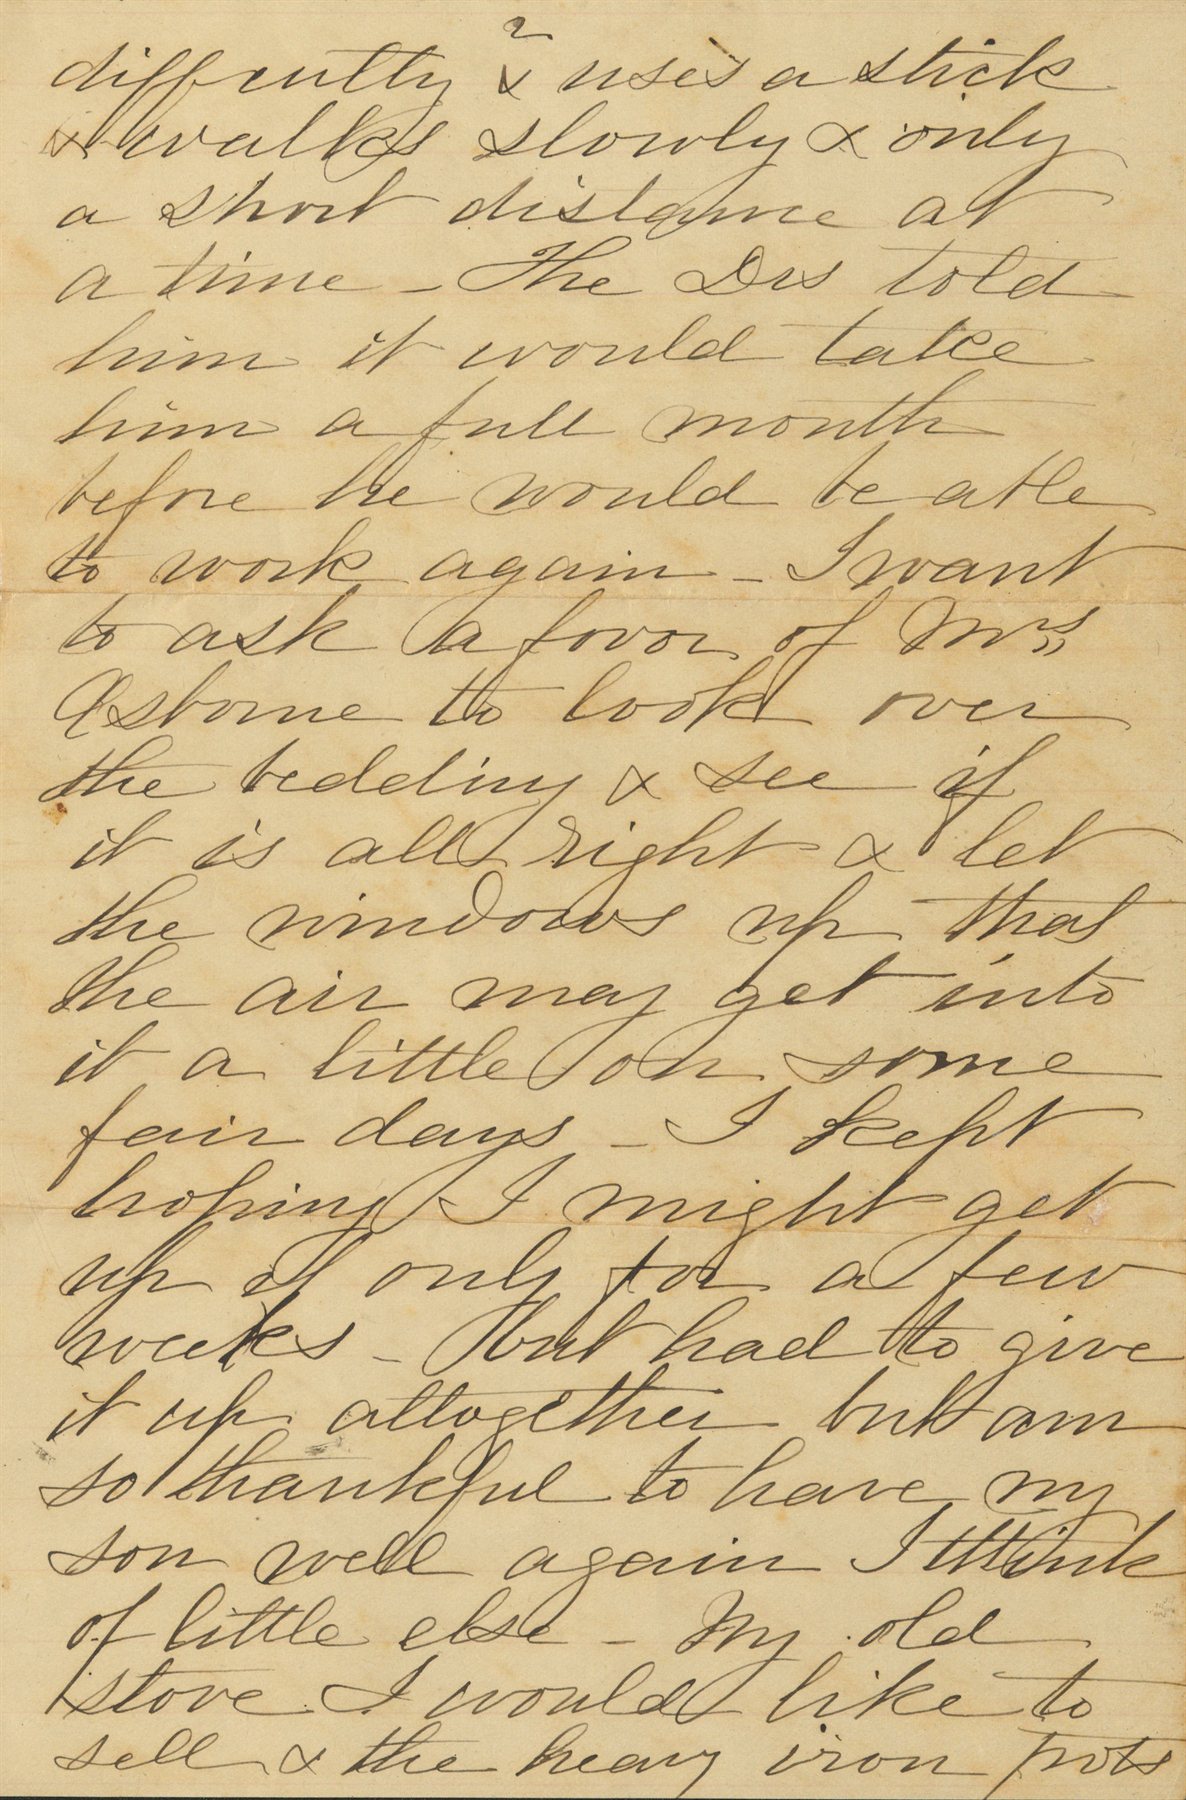 2
difficulty & uses a stick
& walks slowly & only
a short distance at
a time - The Drs told
him it would take
him a full month
before he would be able
to work again - I want
to ask a favor of Mrs
Osborne to look over
the bedding & see if
it is all right & let
the windows up that
the air may get into
it a little on some
fair days - I kept
hoping I might get
up if only for a few
weeks - but had to give
it up altogether but am
so thankful to have my
son well again I think
of little else - My old
stove I would like to
sell & the heavy iron pots